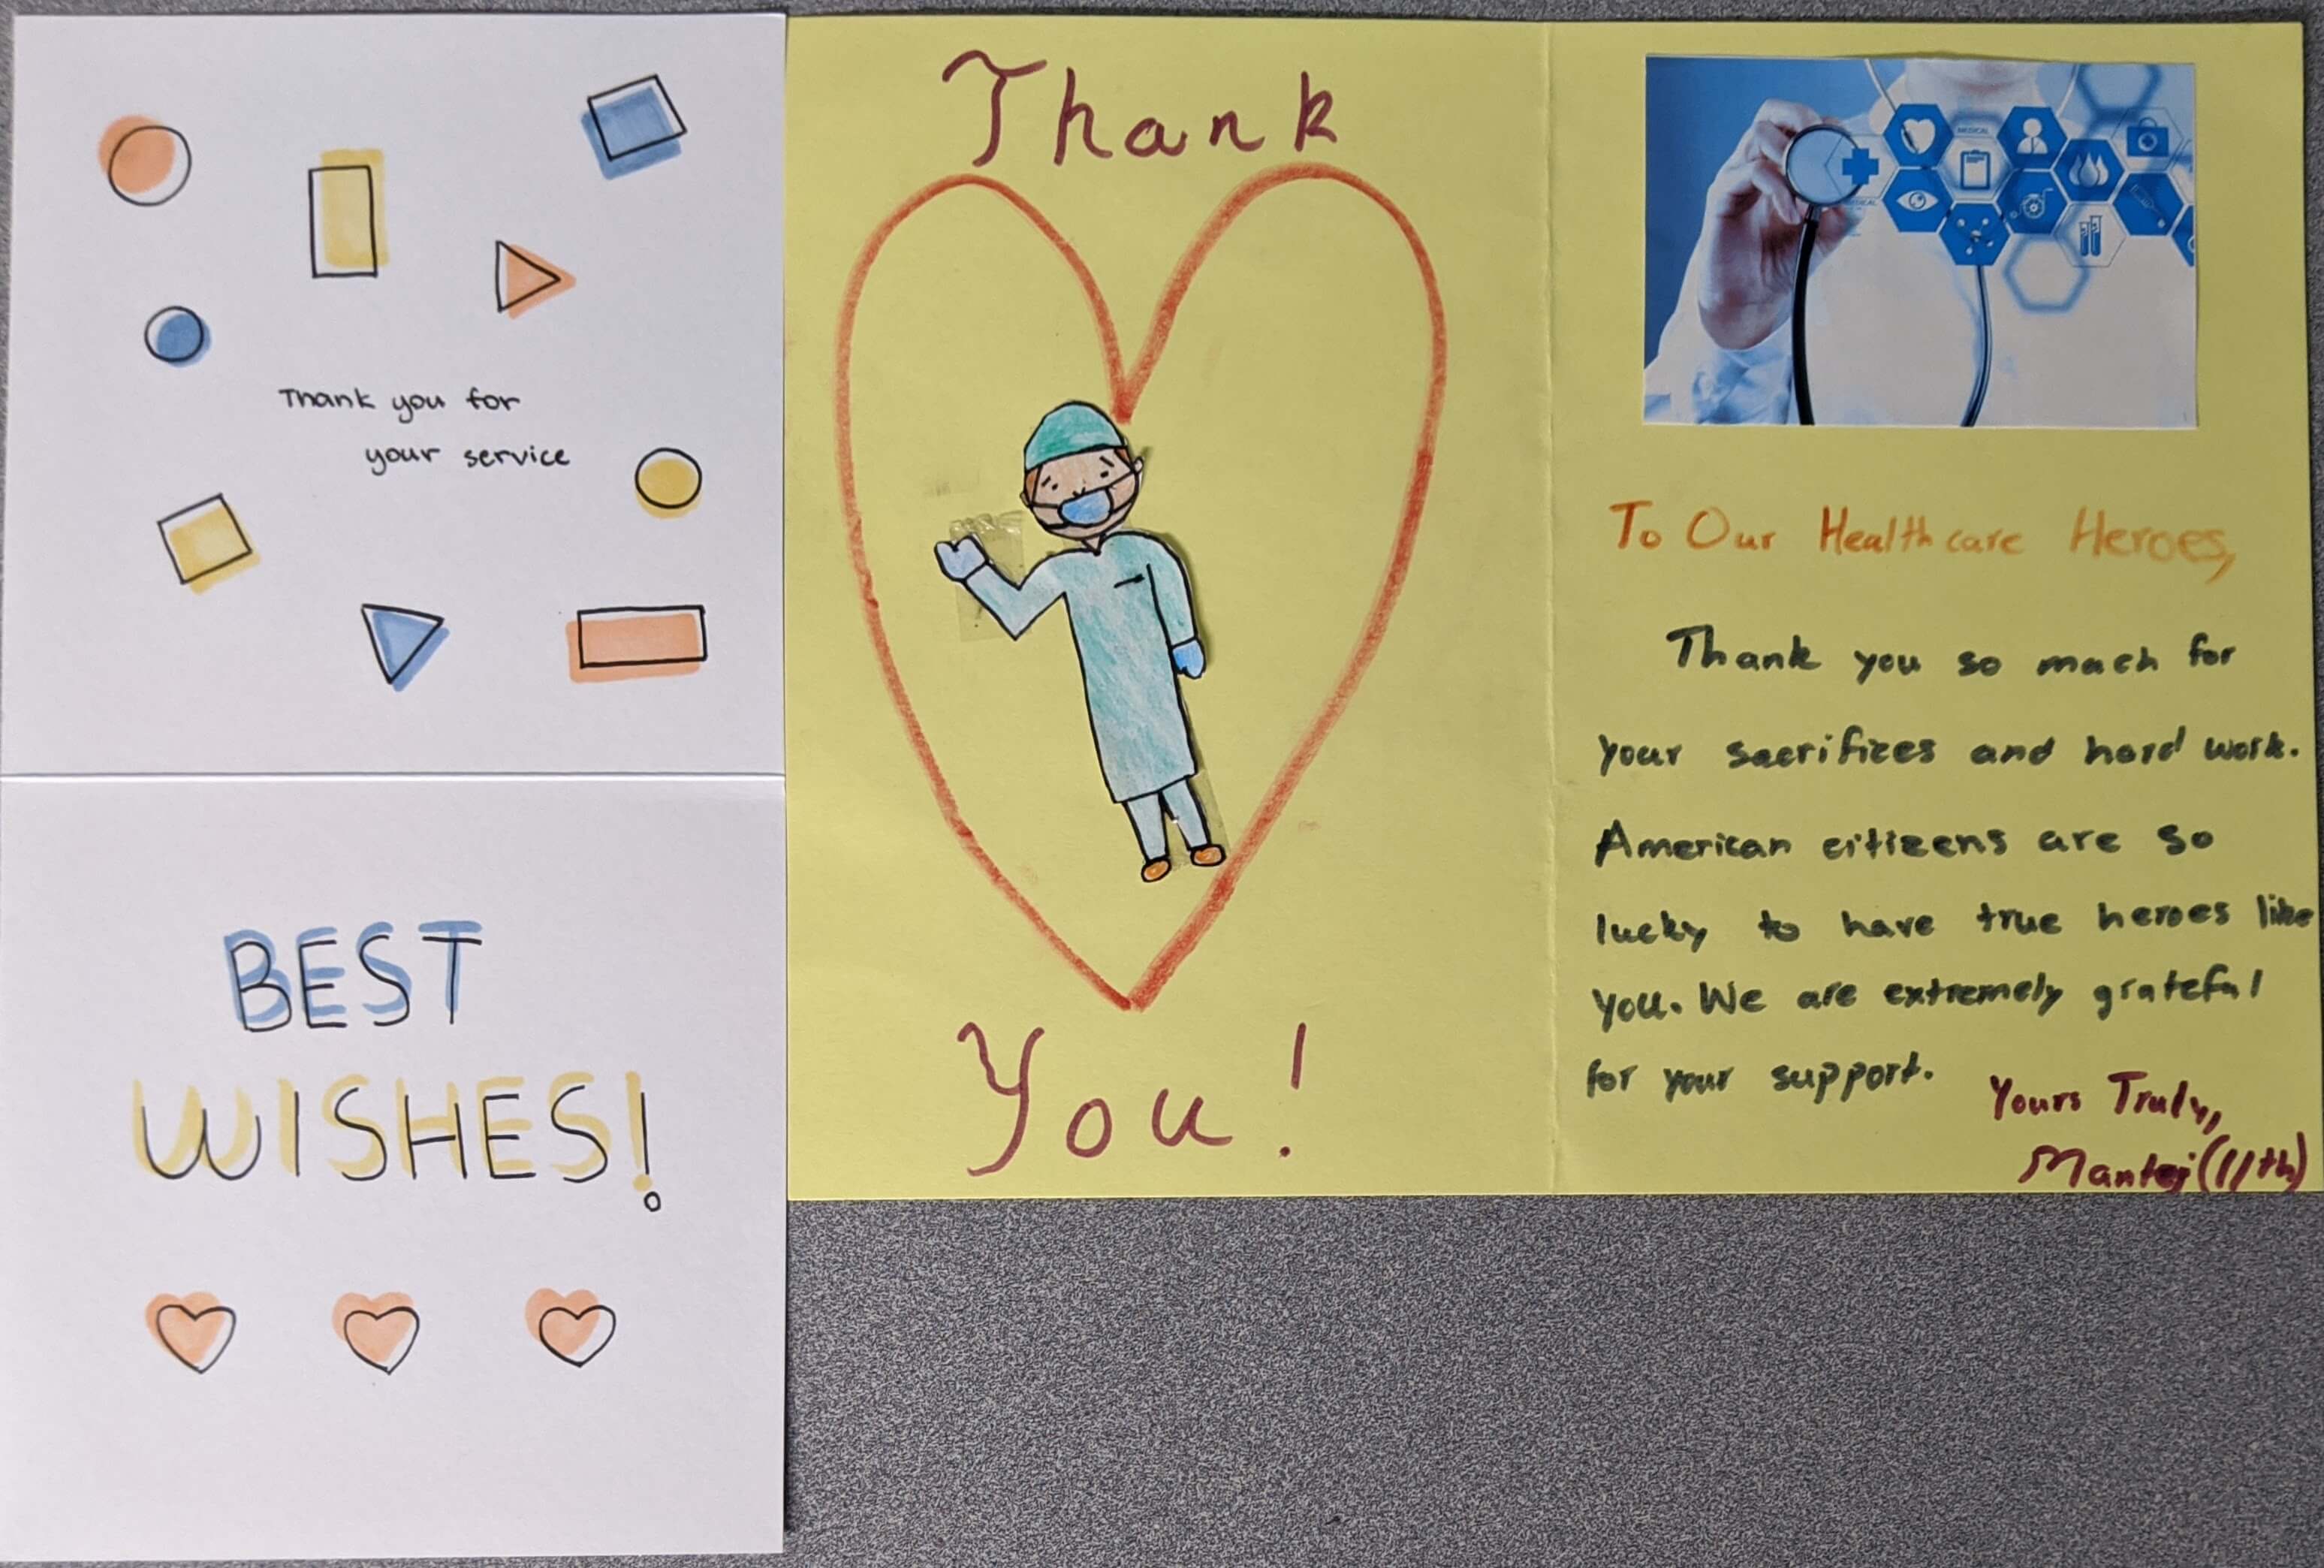 Thank you for
your service
BEST
WISHES!
Thank
You!
MEDICAL
To Our Healthcare Heroes,
Thank you so much for
your sacrifices and hard work.
American citizens are so
lucky to have true heroes like
you. We are extremely grateful
for your support.
Yours Truly,
Mantej (11th)